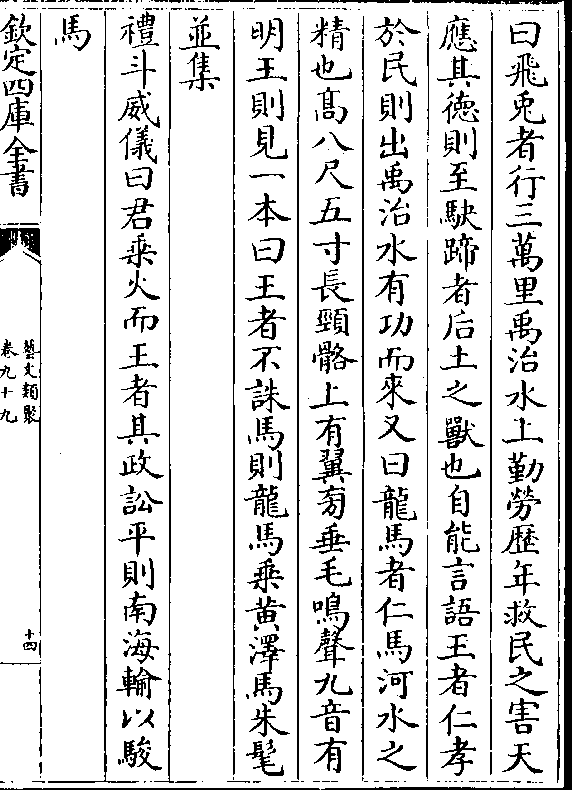 曰飛兎者行三萬里禹治水上勤勞歴年救民之害天
應其徳則至駃蹄者后土之獸也自能言語王者仁孝
於民則出禹治水有功而來又曰龍馬者仁馬河水之
精也髙八尺五寸長頸骼上有翼㫄垂毛鳴聲九音有
明王則見一本曰王者不誅馬則龍馬乗黄澤馬朱髦
並集
禮斗威儀曰君乗火而王者其政訟平則南海輸以駿
馬
欽定四庫全書
藝文類聚
卷九十九
十四